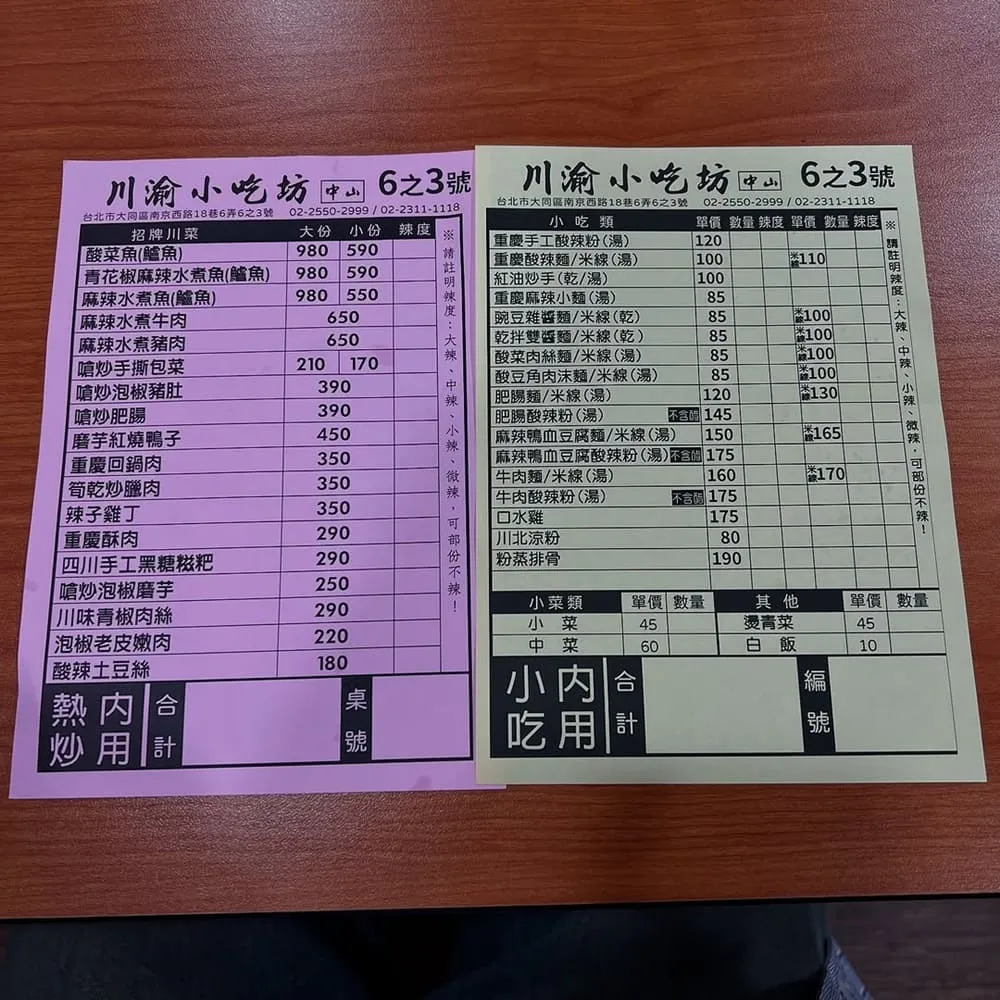 川渝小吃坊 中山 6之3號
台北市大同區南京西路18巷6弄6之3號 02-2550-2999 / 02-2311-1118
招牌川菜 大份 小份 辣度
酸菜魚(鱸魚) 980 590
青花椒麻辣水煮魚(鱸魚) 980 590
麻辣水煮魚(鱸魚) 980 550
麻辣水煮牛肉 650
麻辣水煮豬肉 650
嗆炒手撕包菜 210 170
嗆炒泡椒豬肚 390
嗆炒肥腸 390
磨芋紅燒鴨子 450
重慶回鍋肉 350
筍乾炒臘肉 350
辣子雞丁 350
重慶酥肉 290
四川手工黑糖糍粑 290
嗆炒泡椒磨芋 250
川味青椒肉絲 290
泡椒老皮嫩肉 220
酸辣土豆絲 180
※請註明辣度:大辣、中辣、小辣、微辣,可部份不辣!
熱炒 內用 合計 桌號
川渝小吃坊 中山 6之3號
台北市大同區南京西路18巷6弄6之3號 02-2550-2999 / 02-2311-1118
小吃類 單價 數量 辣度 單價 數量 辣度
重慶手工酸辣粉(湯) 120
重慶酸辣麵/米線(湯) 100 米線110
紅油炒手(乾/湯) 100
重慶麻辣小麵(湯) 85
豌豆雜醬麵/米線(乾) 85 米線100
乾拌雙醬麵/米線(乾) 85 米線100
酸菜肉絲麵/米線(湯) 85 米線100
酸豆角肉沫麵/米線(湯) 85 米線100
肥腸麵/米線(湯) 120 米線130
肥腸酸辣粉(湯) 不含醋 145
麻辣鴨血豆腐麵/米線(湯) 150 米線165
麻辣鴨血豆腐酸辣粉(湯) 不含醋 175
牛肉麵/米線(湯) 160 米線170
牛肉酸辣粉(湯) 不含醋 175
口水雞 175
川北涼粉 80
粉蒸排骨 190
※請註明辣度:大辣、中辣、小辣、微辣,可部份不辣!
小菜類 單價 數量 其他 單價 數量
小菜 45 燙青菜 45
中菜 60 白飯 10
小吃 內用 合計 編號